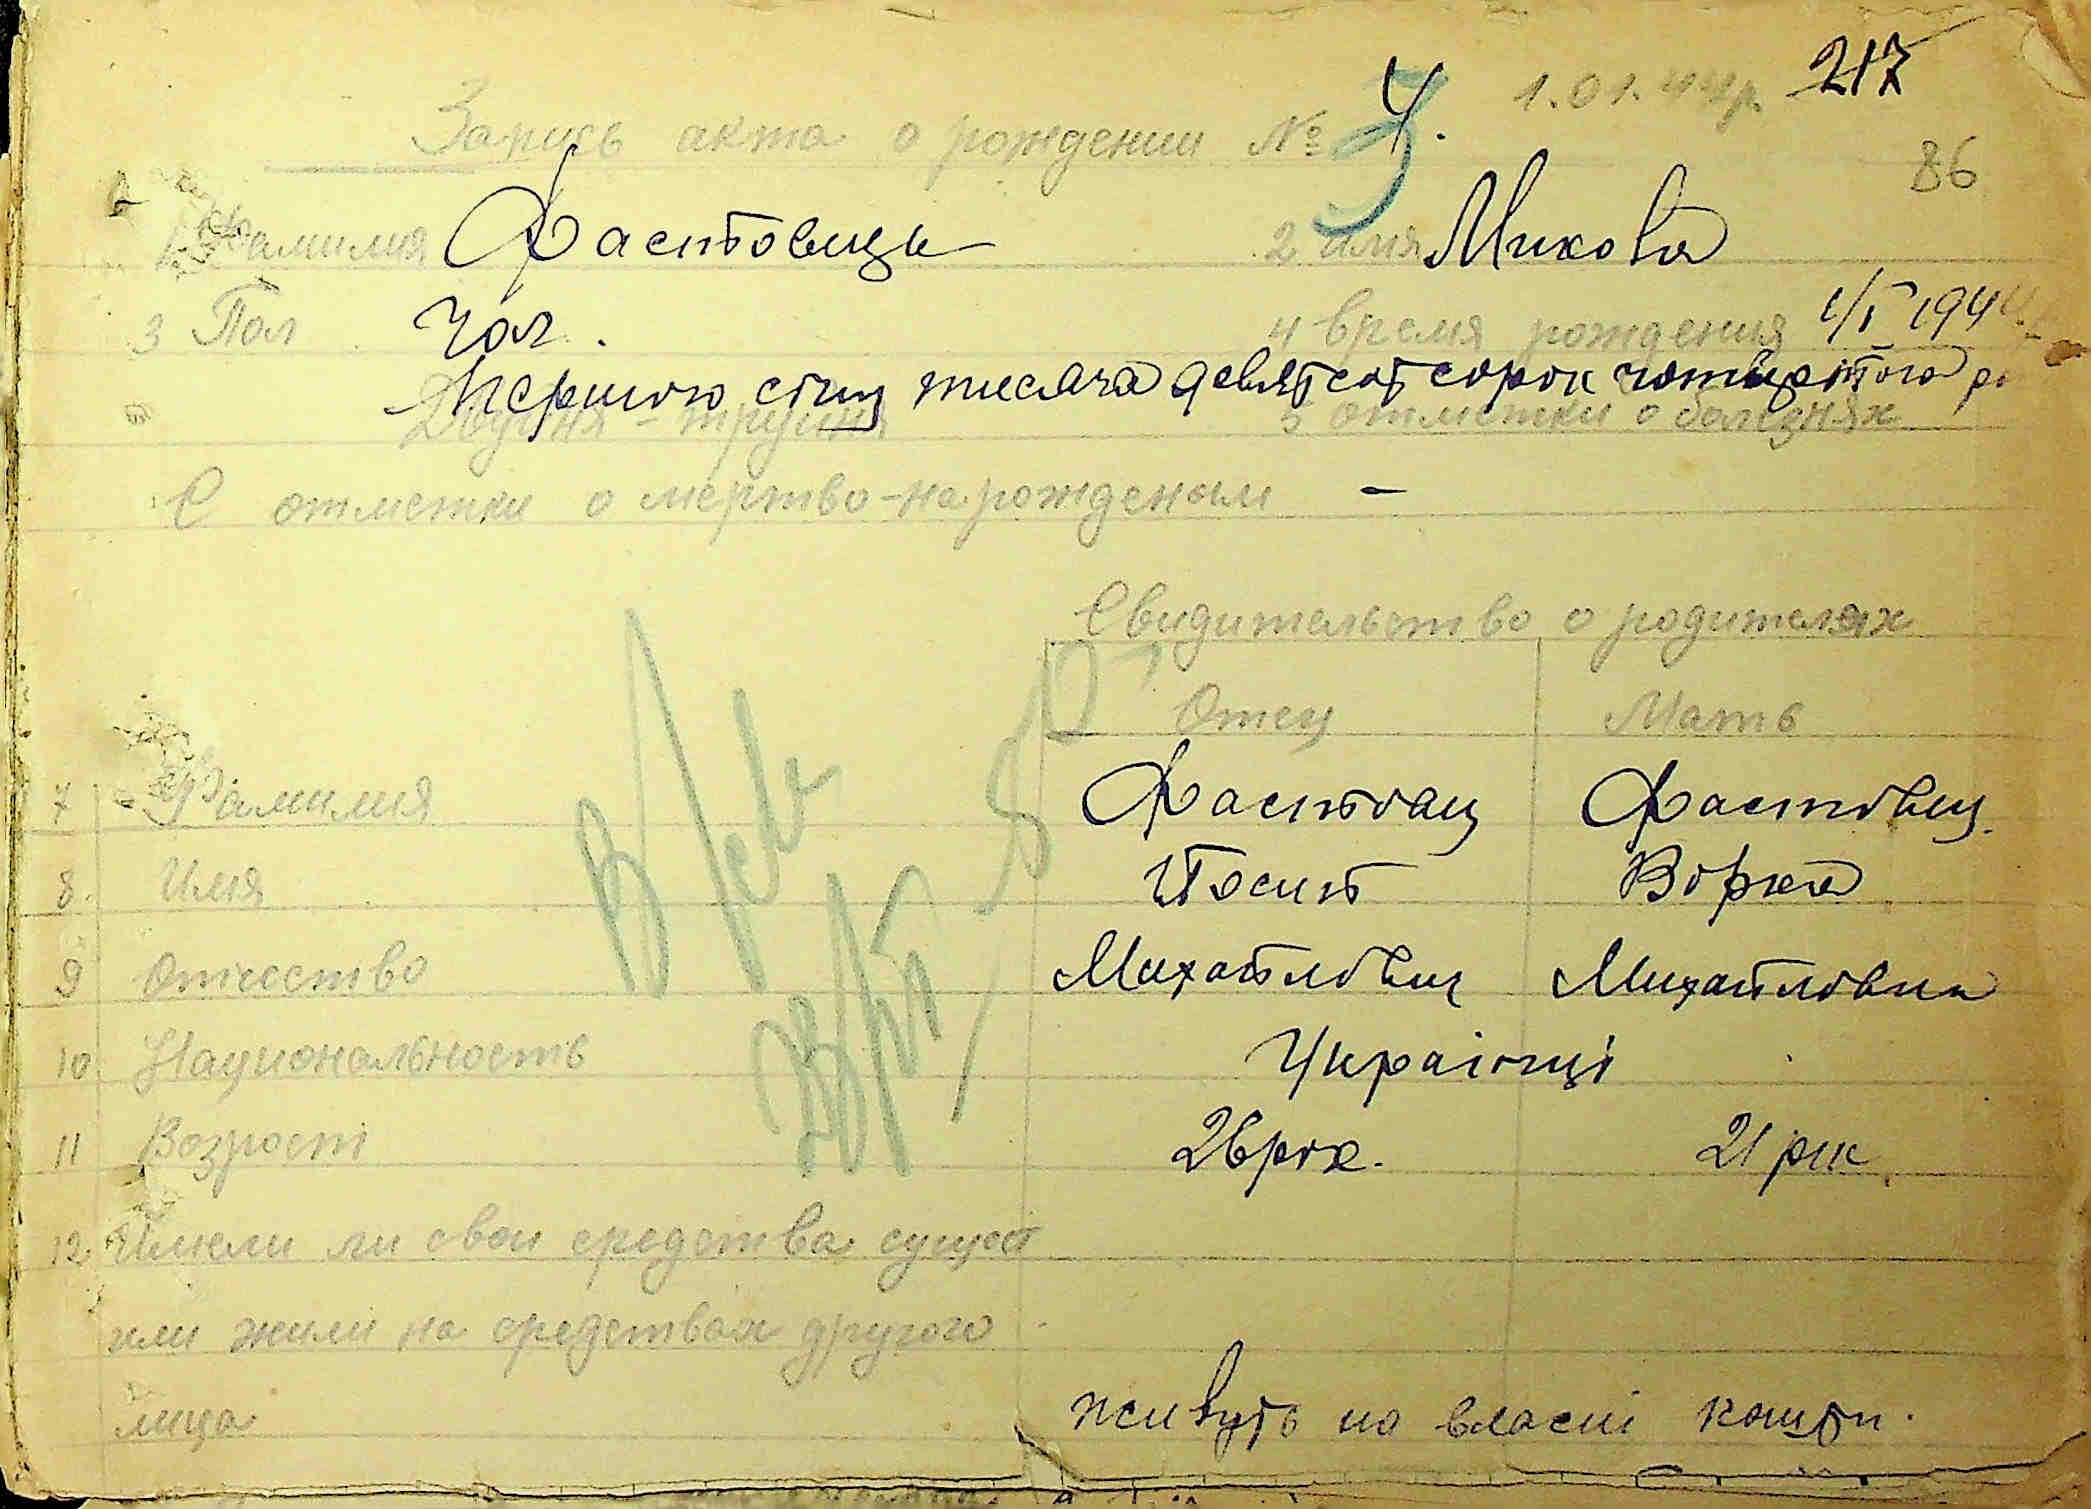 1.01.44р. 217
Запись акта о рождении № 4.
86
1 Фамилия Фастовець 2 имя Микола
3 Пол Чол. 4 время рождения 1/I 1944
Першого січ тисяча девятсот сорок четвертого
Двойня - тройня 5 отметки о болезнях
6 отметки о мертво-нарожденом -
Свидительство о родителях
Отец Мать
7 Фамилия Фастовец Фастовец.
8. Имя Йосип Ворка
9 Отчество Михайлович Михайловна
10 Национальность Українці
11 Возрост 26 рок. 21 рік
12. Имели ли свои средства сущест
или жили на средствах другого
лица живуть на власні кошти.